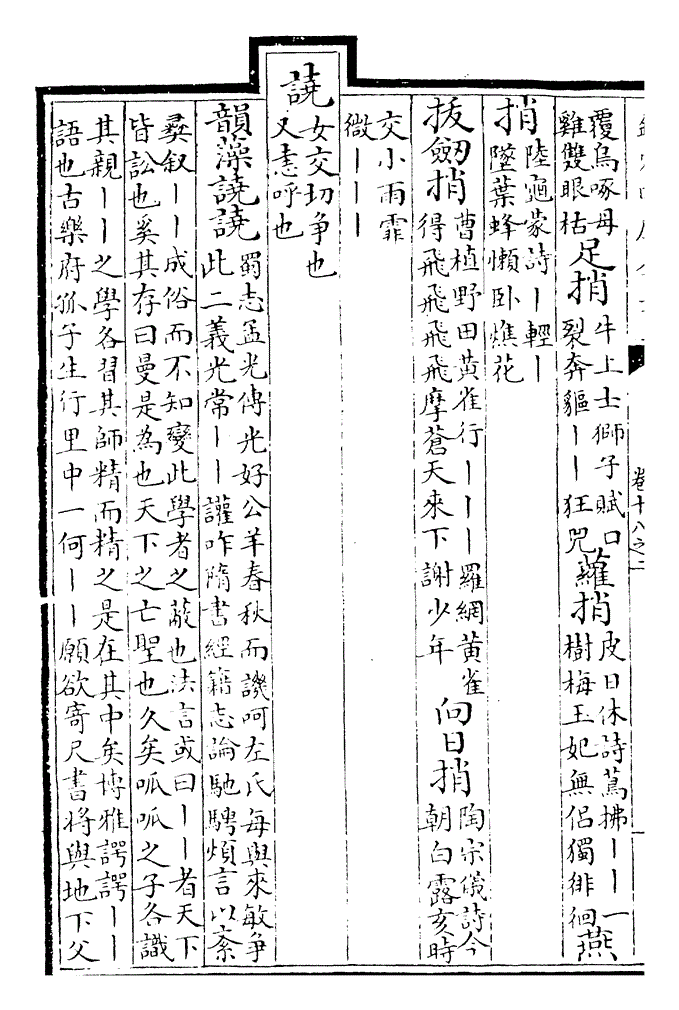 覆烏啄母
雞雙眼枯
足捎
牛上士獅子賦口
裂奔貙丨丨狂兕
蘿捎
皮日休詩蔦拂丨丨一
樹梅玉妃無侶獨徘徊
燕
捎
陸龜蒙詩丨輕丨
墜葉蜂懶卧燋花
拔劒捎
曹植野田黃雀行丨丨丨羅網黃雀
得飛飛飛飛摩蒼天來下謝少年
向日捎
陶宗儀詩今
朝白露亥時
交小雨霏
微丨丨丨
譊
女交切争也
又恚呼也
韻藻譊譊
蜀志孟光傳光好公羊春秋而譏呵左氏每與來敏爭
此二義光常丨丨讙咋隋書經籍志論馳騁煩言以紊
彞叙丨丨成俗而不知變此學者之蔽也法言或曰丨丨者天下
皆訟也奚其存曰曼是為也天下之亡聖也久矣呱呱之子各識
其親丨丨之學各習其師精而精之是在其中矣博雅諤諤丨丨
語也古樂府孫子生行里中一何丨丨願欲寄尺書將與地下父
卷十八之二